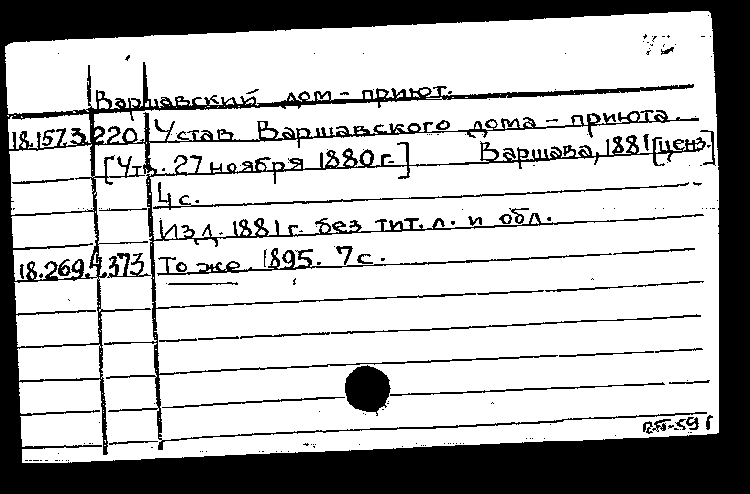 Варшавский дом-приют.
18.157.3.220. Устав Варшавского дома-приюта.
[Утв. 27 ноября 1880 г.] Варшава, 1881 [ценз.]
4 с.
Изд. 1881 г. без тит. л. и обл.
18.269.4.373 То же. 1895. 7 с.